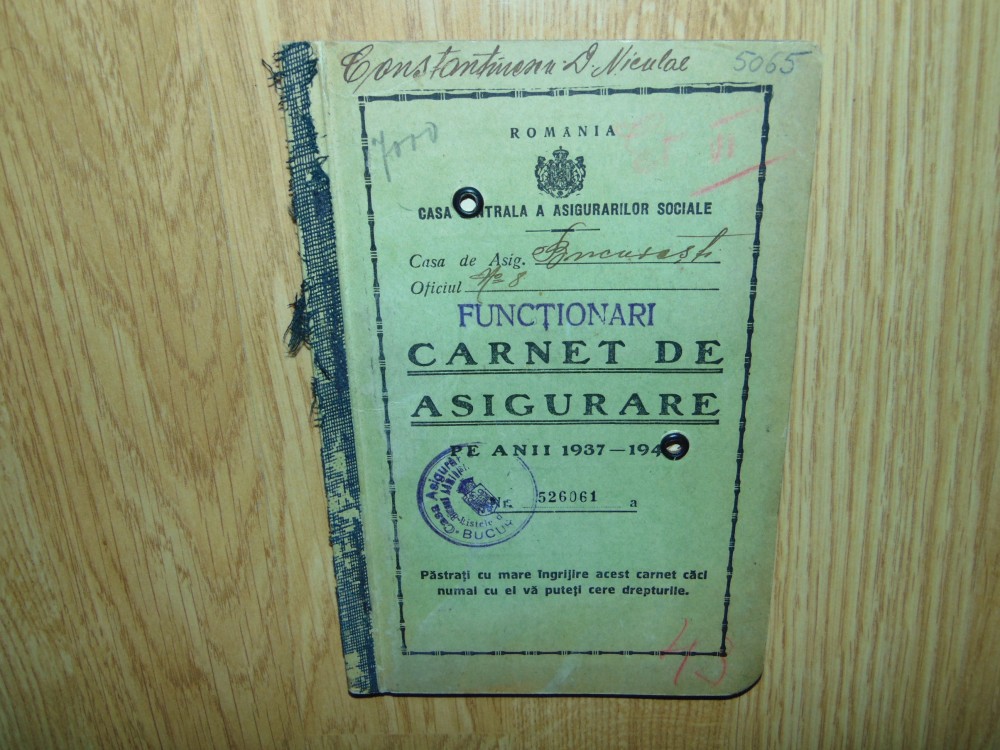 Constantinescu D. Niculae 5065
7000
II
ROMÂNIA
CASA NTRALA A ASIGURARILOR SOCIALE
Casa de Asig. București
Oficiul No 8
FUNCȚIONARI
CARNET DE
ASIGURARE
PE ANII 1937—194
Nr. 526061 a
Casa Asigură
Listele d
BUCU
Păstrați cu mare îngrijire acest carnet căci
numai cu el vă puteți cere drepturile.
43